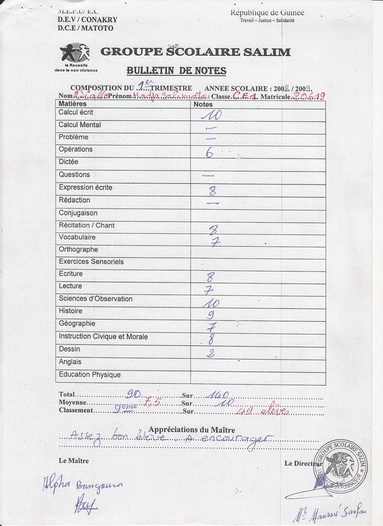 M.E.P.U/E.C
République de Guinée
D.E.V / CONAKRY
Travail – Justice – Solidarité
D.C.E / MATOTO
GROUPE SCOLAIRE SALIM
la Réussite
dans la non violence
BULLETIN DE NOTES
COMPOSITION DU 1er TRIMESTRE ANNEE SCOLAIRE : 200 / 200
Nom Diallo Prénom Classe CE1 Matricule 20619
Matières Notes
Calcul écrit 10
Calcul Mental —
Problème —
Opérations 6
Dictée
Questions —
Expression écrite 8
Rédaction —
Conjugaison
Récitation / Chant 8
Vocabulaire 7
Orthographe
Exercices Sensoriels
Ecriture 8
Lecture 7
Sciences d'Observation 10
Histoire 9
Géographie 7
Instruction Civique et Morale 8
Dessin 2
Anglais
Education Physique
Total 90 Sur 140
Moyenne 7,5 Sur 10
Classement 9ème Sur 49 élèves
Appréciations du Maître
Assez bon élève. A encourager
Le Maître Le Directeur
GROUPE SCOLAIRE SALIM
Alpha Bangoura